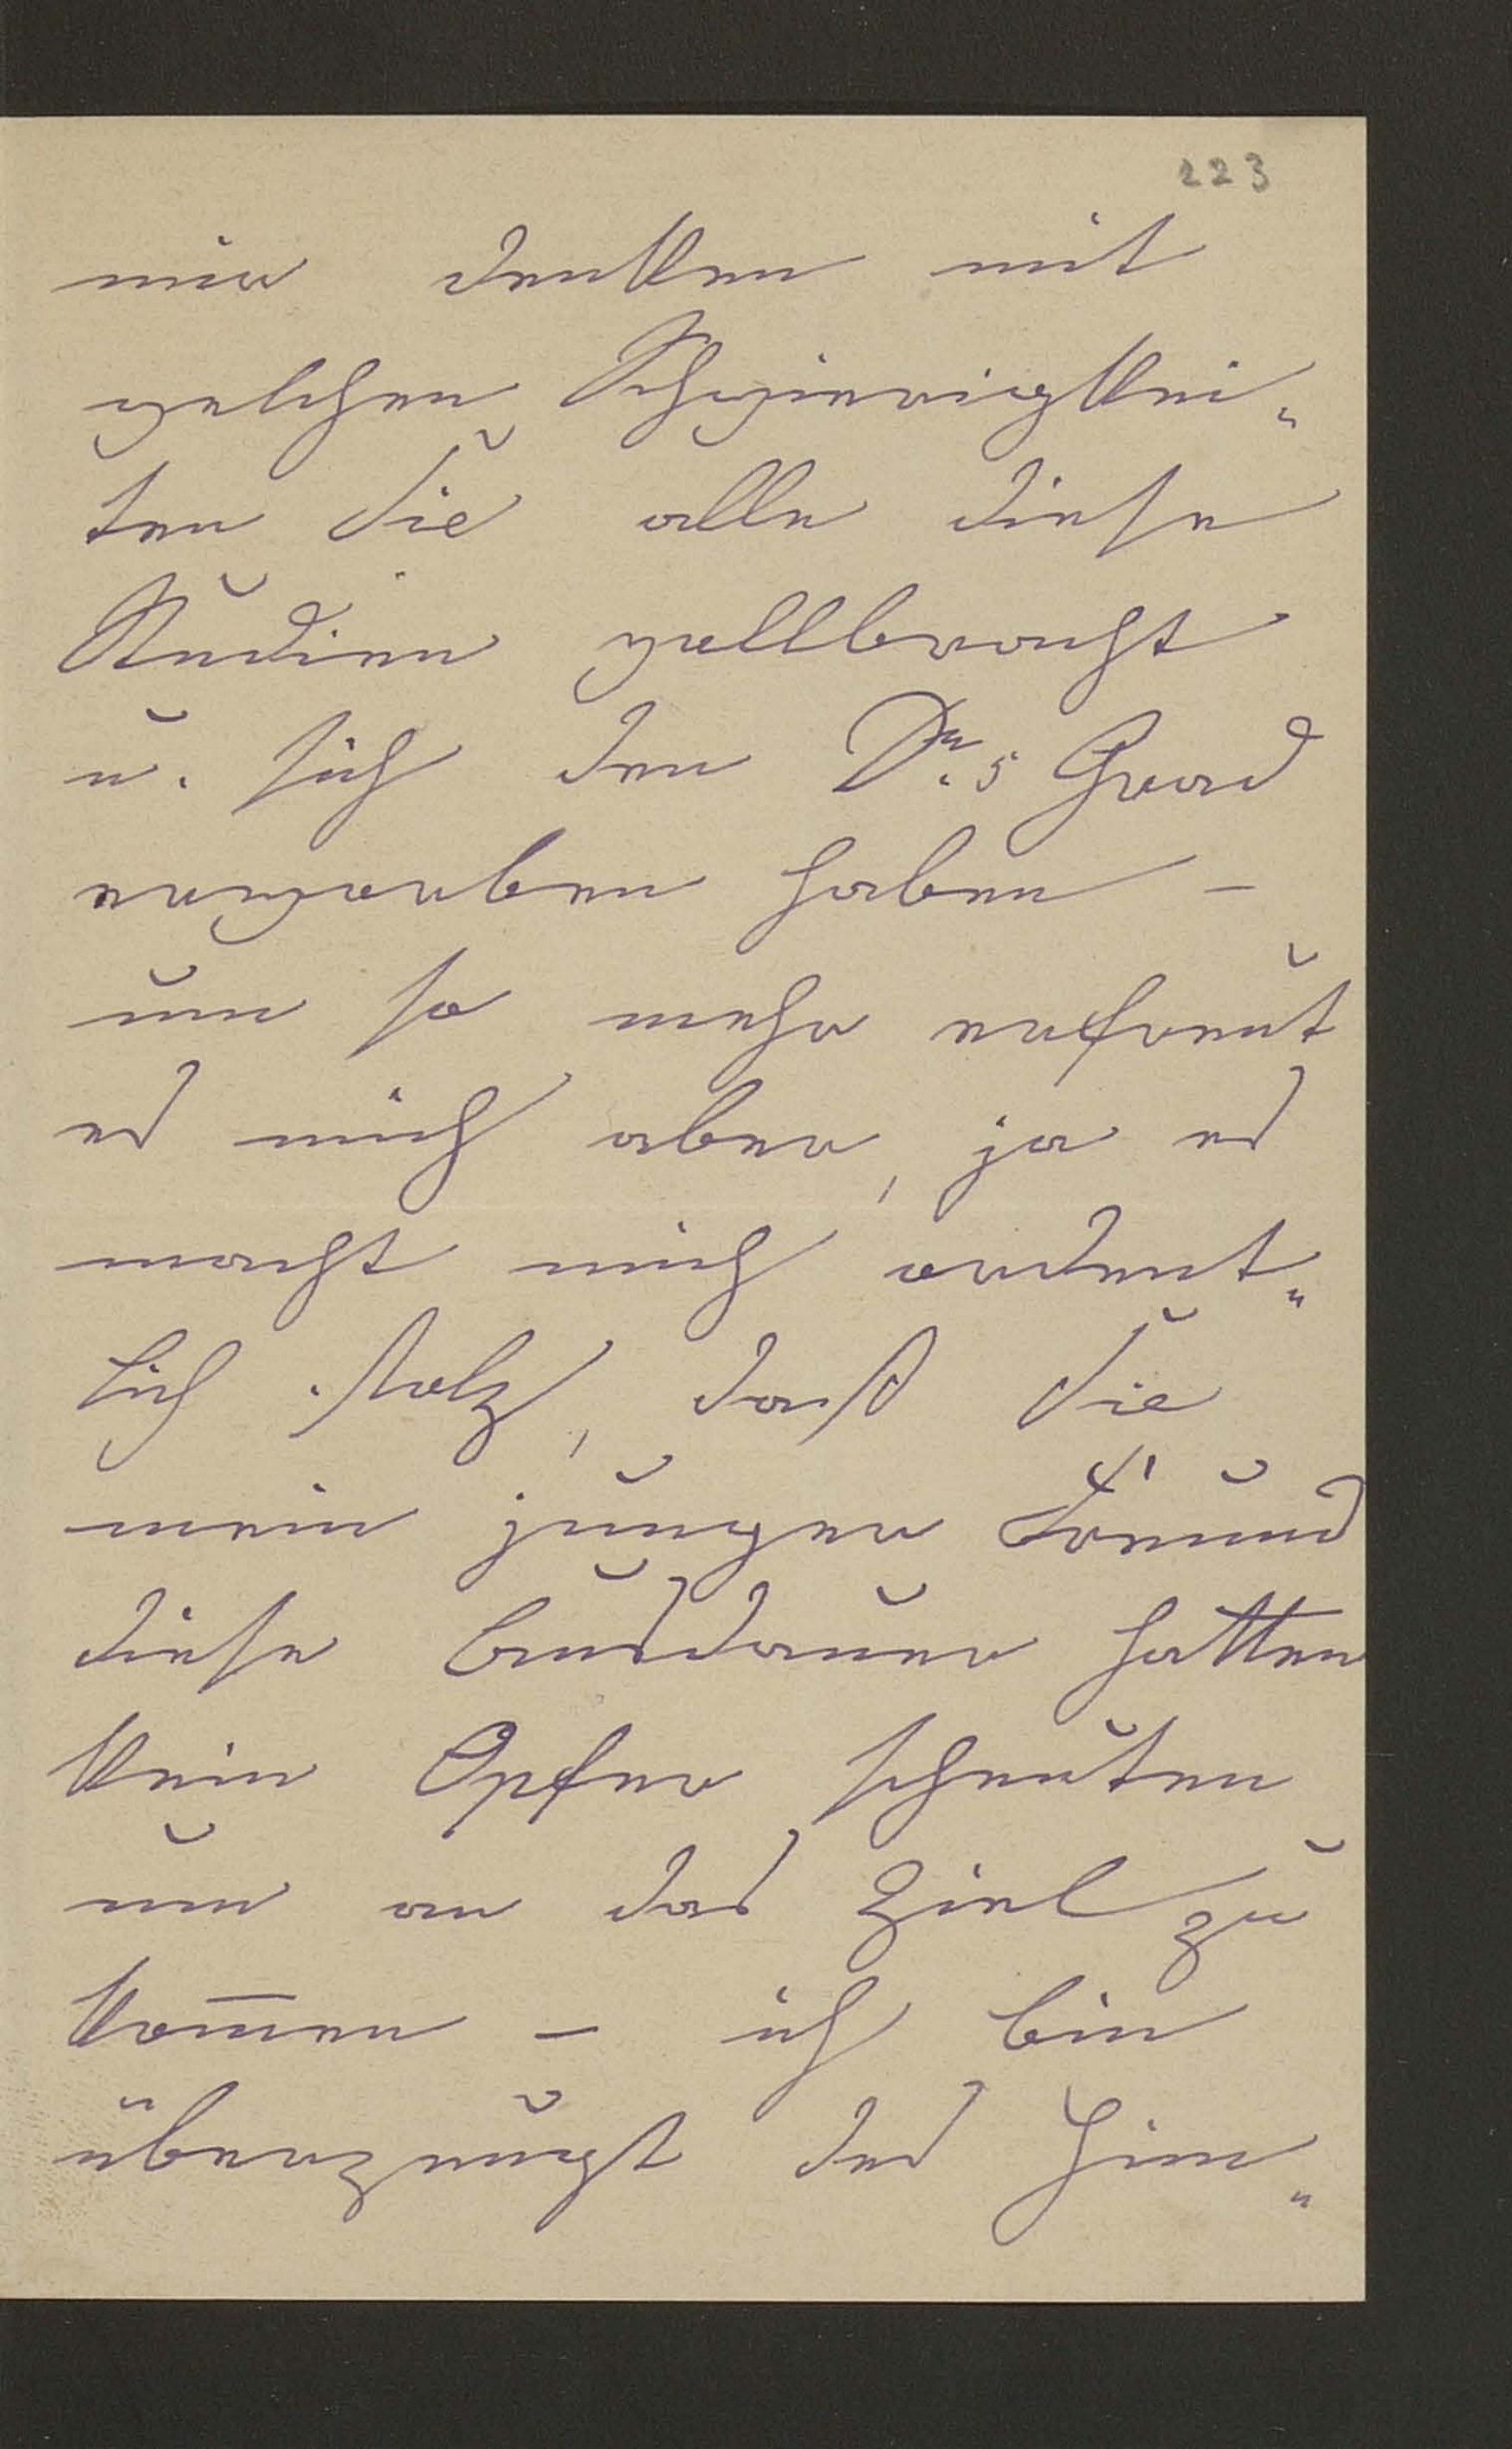 223
mir denken mit
welchen Schwierigkei„
ten Sie alle diese
Studien vollbracht
u. sich den Dr.s Grad
erworben haben –
um so mehr erfreut
es mich aber, ja es
macht mich ordent„
lich stolz, daß Sie
mein junger Freund
diese Ausdauer hatten
kein Opfer scheuten
um an das Ziel zu
kom̅en – ich bin
überzeugt des Him„